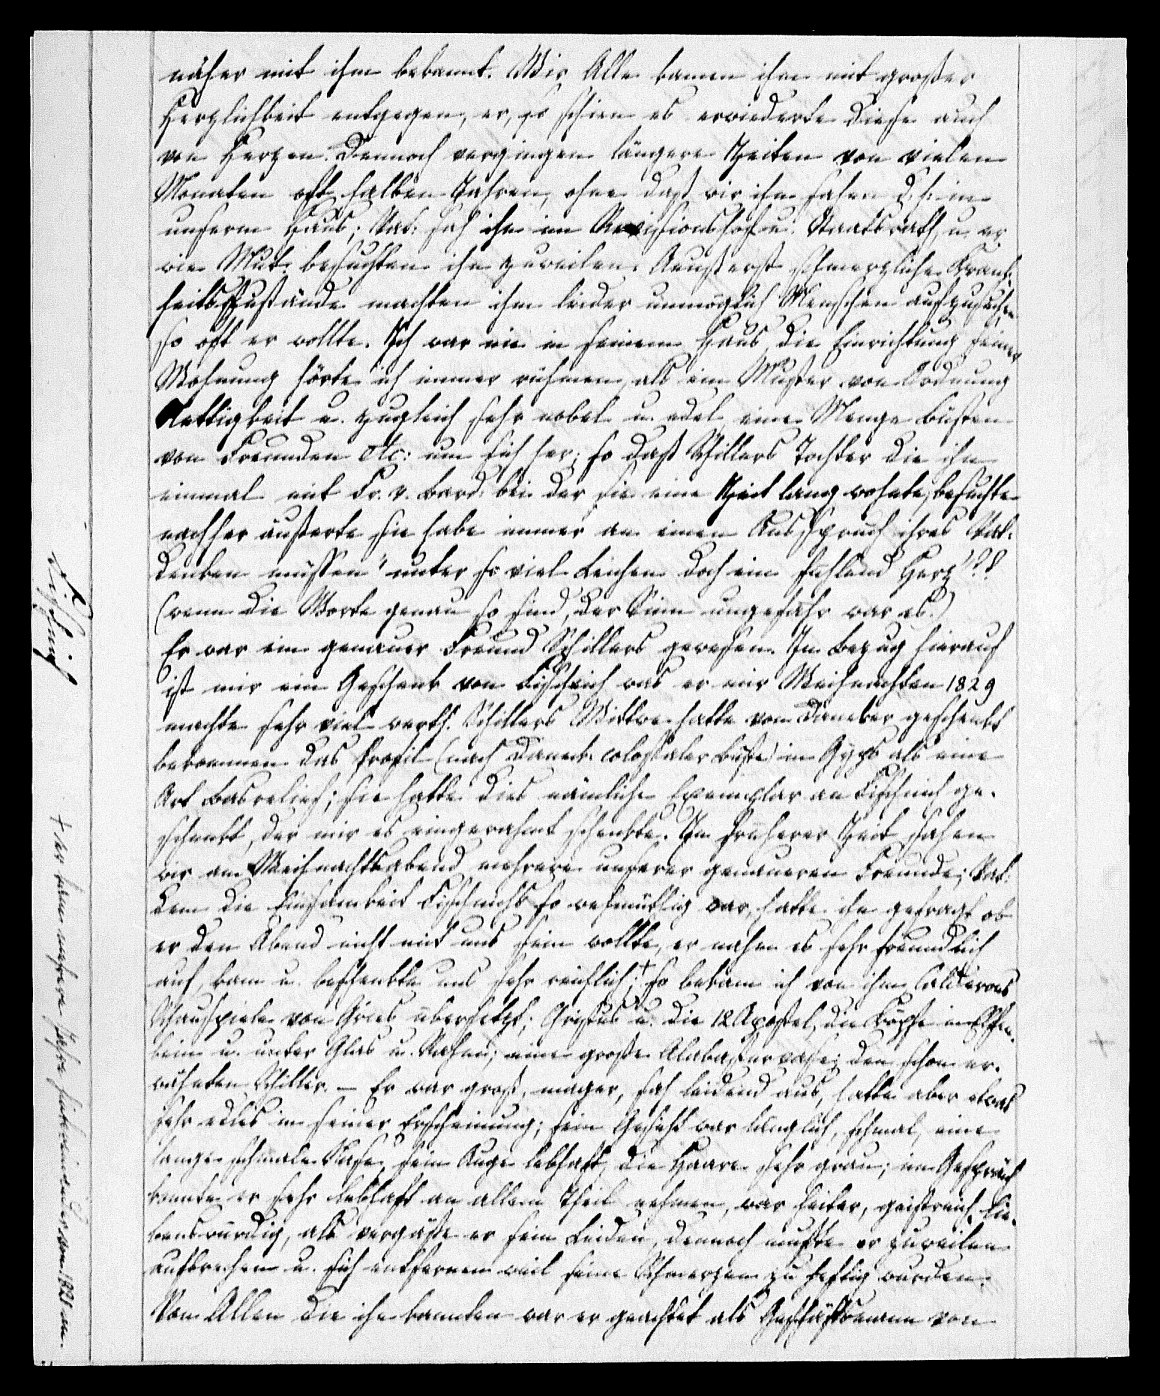 näher mit ihm bekannt. Wir Alle kamen ihm mit großer
Herzlichkeit entgegen, er, so schien es erwiederte diese auch
von Herzen. Dennoch vergingen längere Zeiten von vielen
Monaten oft halben Jahren, ohne daß wir ihn sahen d. h. in
unserm Haus; Vat: sah ihn im Revisionshof u. Staatsrath, u. er
wie Mut: besuchten ihn zuweilen. Aeußerst schmerzliche Krank-
heitszustände machten ihm leider unmöglich Menschen aufzusuchen
so oft er wollte. Ich war nie in seinem Haus, die Einrichtung seiner
Wohnung hörte ich immer rühmen, als ein Muster von Ordnung
Nettigkeit u. zugleich sehr nobel u. edel, eine Menge Büsten
von Freunden etc: um sich her; so daß Schillers Tochter die ihn
einmal mit Fr. v. Bard: bei der sie eine Zeit lang wohnte, besuchte
nachher äußerte sie habe immer an einen Ausspruch ihres Vat:
denken müssen "unter so viel Leichen doch ein fühlend Herz"??
(wenn die Worte genau so sind, der Sinn ungefähr war es.)
Er war ein genauer Freund Schillers gewesen. In Bezug hierauf
ist mir ein Geschenk von Fischnich was er mir Weihnachten 1829
machte sehr viel werth. Schillers Wittwe hatte von Daneker geschenkt
bekommen das Profil (nach Danek: colossaler Büste) in Gyps als eine
Art Basrelief; sie hatte dies nämliche Exemplar an Fischnich ge-
schenkt, der mir es eingerahmt schenkte. In früherer Zeit sahen
wir am Weihnachtsabend mehrere unserer genaueren Freunde; Vat:
dem die Einsamkeit Fischnichs so wehmüthig war, hatte ihn gefragt ob
er den Abend nicht mit uns sein wollte, er nahm es sehr freundlich
auf, kam u. beschenkte uns sehr reichlich;+ so bekam ich von ihm Calderons
Schauspiele von Gries übersetzt; Christus u. die 12 Apostel, die Köpfe in Elfen-
bein u. unter Glas u. Rahm; eine große Alabastervase; den schon er-
wähnten Schiller. — Er war groß, mager, sah leidend aus, hatte aber etwas
sehr edles in seiner Erscheinung; sein Gesicht war länglich, schmal, eine
lange schmale Nase, sein Auge lebhaft, die Haare sehr grau; im Gespräch
konnte er sehr lebhaft an allem Theil nehmen, war heiter, geistreich, lie-
benswürdig, als vergäße er sein Leiden, dennoch mußte er zuweilen
aufbrechen u. sich entfernen weil seine Schmerzen zu heftig wurden.
Von Allen die ihn kannten war er geachtet als Geschäftsmann von
Fischnich
+ der kam mehrere Jahre hintereinander
+